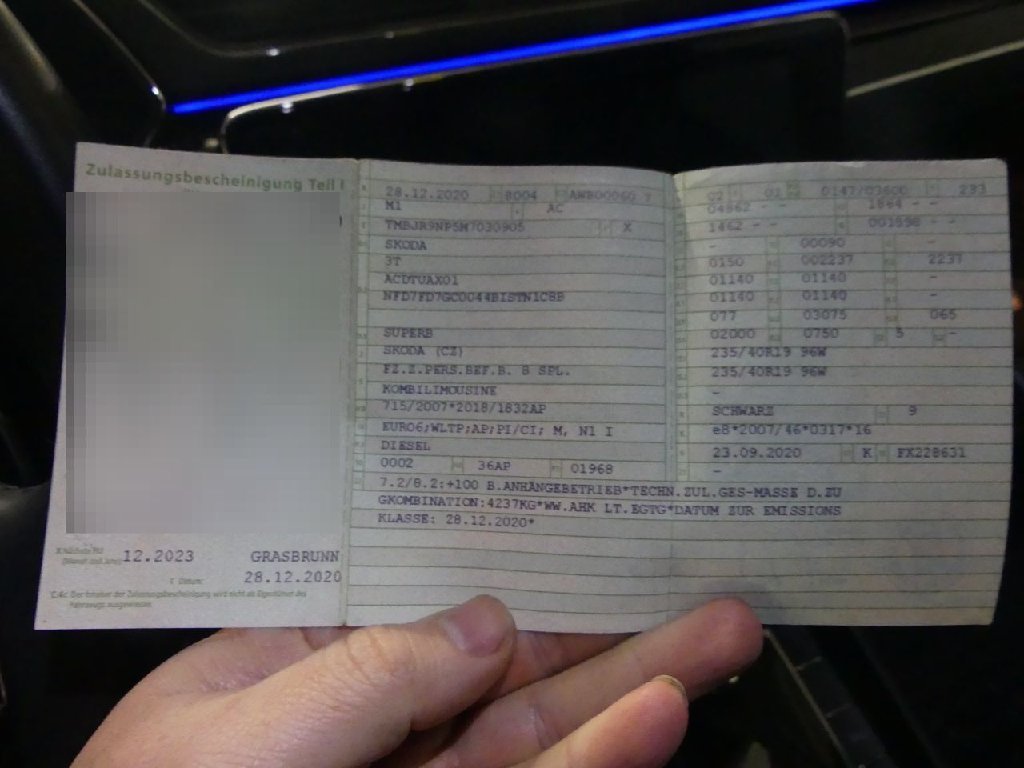 Zulassungsbescheinigung Teil I
12.2023
GRASBRUNN
28.12.2020
28.12.2020 8004
M1 AC
X
SKODA
3T
ACDTUAX01
SUPERB
SKODA (CZ)
FZ.Z.PERS.BEF.B. 8 SPL.
KOMBILIMOUSINE
715/2007*2018/1832AP
EURO6;WLTP;AP;PI/CI; M, N1 I
DIESEL
0002 36AP 01968
7.2/8.2:+100 B.ANHÄNGEBETRIEB*TECHN.ZUL.GES-MASSE D.ZU
GKOMBINATION:4237KG*WW.AHK LT.EGTG*DATUM ZUR EMISSIONS
KLASSE: 28.12.2020*
02 01 0147/03600
04862 - - 1864 - -
1462 - -
- 00090 -
0150 002237 2237
01140 01140 -
01140 01140 -
077 03075 065
02000 0750 5 -
235/40R19 96W
235/40R19 96W
-
SCHWARZ 9
e8*2007/46*0317*16
23.09.2020 K FX228631
-